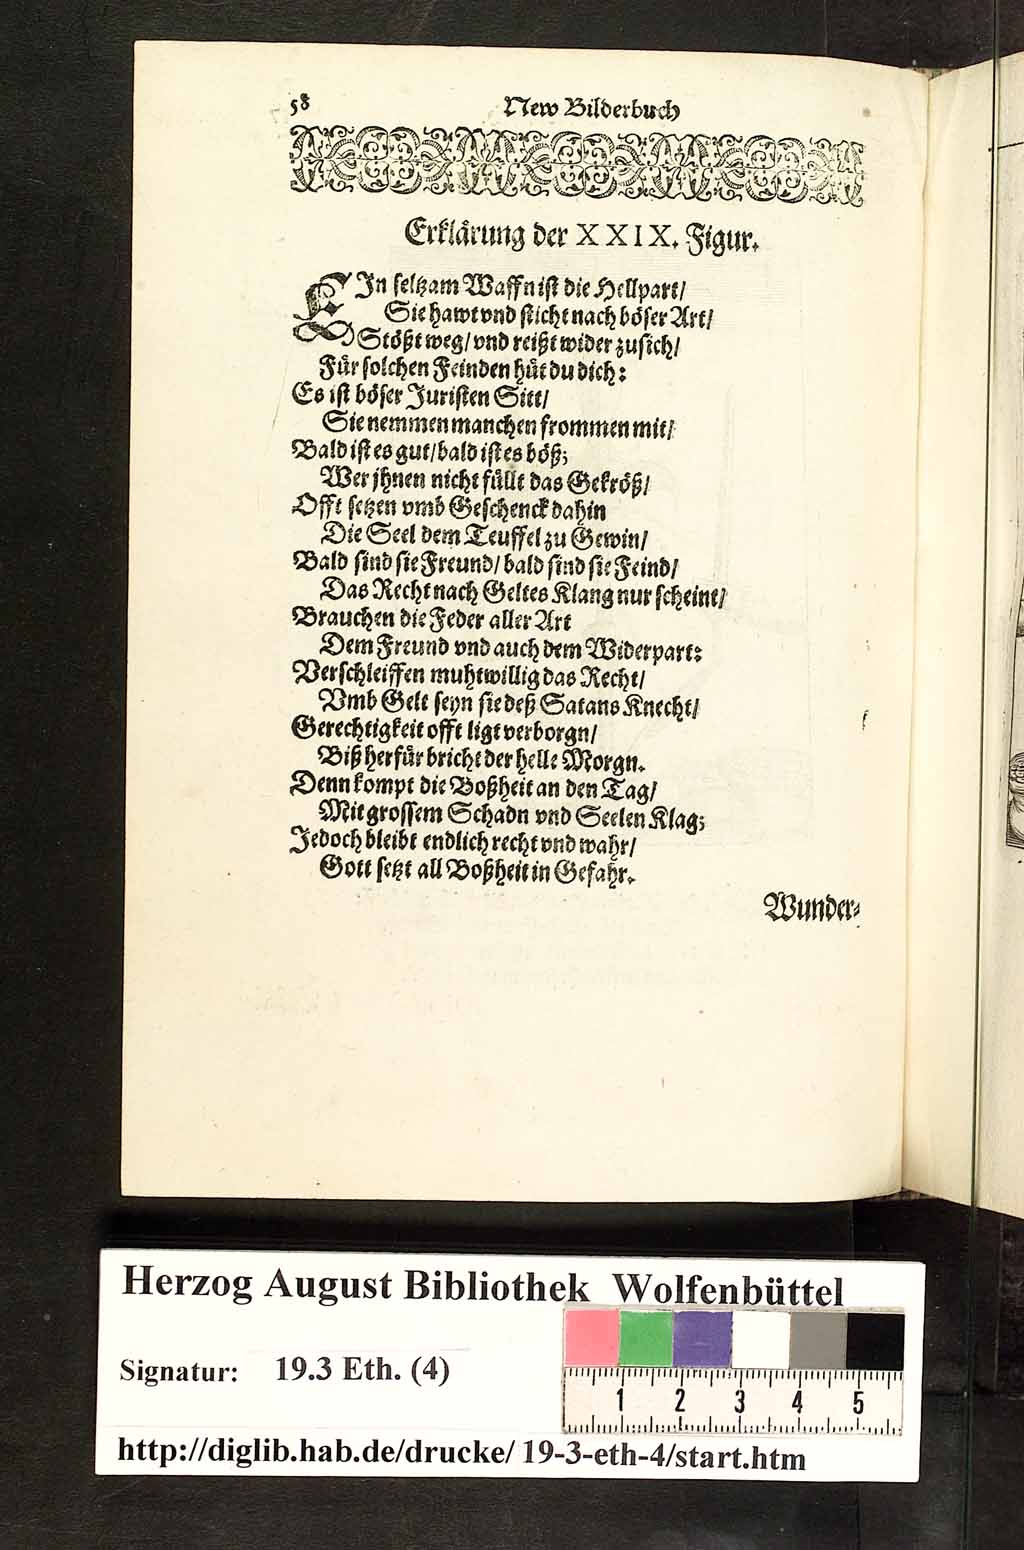 58
New Bilderbuch
Erklärung der XXIX. Figur.
EIn seltzam Waffn ist die Hellpart/
Sie hawt vnd sticht nach böser Art/
Stößt weg/ vnd reißt wider zu sich/
Für solchen Feinden hüt du dich:
Es ist böser Juristen Sitt/
Sie nemmen manchen frommen mit/
Bald ist es gut/ bald ist es böß;
Wer jhnen nicht füllt das Gekröß/
Offt setzen vmb Geschenck dahin
Die Seel dem Teuffel zu Gewin/
Bald sind sie Freund/ bald sind sie Feind/
Das Recht nach Geltes Klang nur scheint/
Brauchen die Feder aller Art
Dem Freund vnd auch dem Widerpart:
Verschleiffen muhtwillig das Recht/
Vmb Gelt seyn sie deß Satans Knecht/
Gerechtigkeit offt ligt verborgn/
Biß herfür bricht der helle Morgn.
Denn kompt die Boßheit an den Tag/
Mit grossem Schadn vnd Seelen Klag;
Jedoch bleibt endlich recht vnd wahr/
Gott setzt all Boßheit in Gefahr.
Wunder-
Herzog August Bibliothek Wolfenbüttel
Signatur: 19.3 Eth. (4)
1 2 3 4 5
http://diglib.hab.de/drucke/ 19-3-eth-4/start.htm